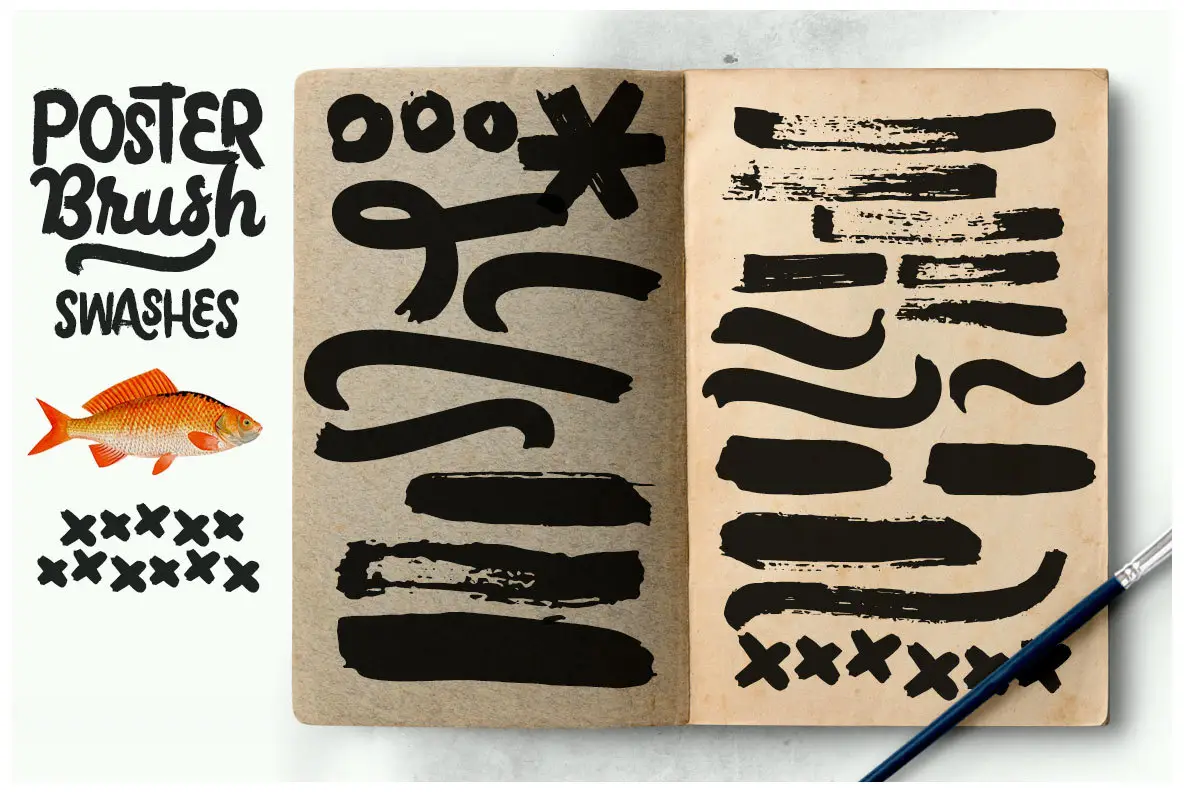 POSTER
Brush
SWASHES